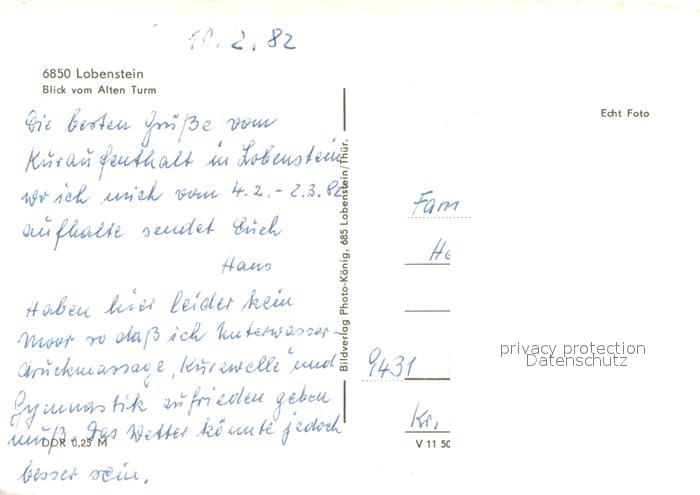 10.2.82
6850 Lobenstein
Blick vom Alten Turm
Echt Foto
Die besten Grüße vom
Kuraufenthalt in Lobenstein,
wo ich mich vom 4.2. - 2.3.82
aufhalte sendet Euch
Hans
Haben hier leider kein
Moor so daß ich Unterwasser-
druckmassage, Kurzwelle und
Gymnastik zufrieden geben
muß. Das Wetter könnte jedoch
besser sein.
DDR 0,25 M
Bildverlag Photo-König, 685 Lobenstein/Thür.
Fam
He
9431
Kr.
V 11 50
privacy protection
Datenschutz